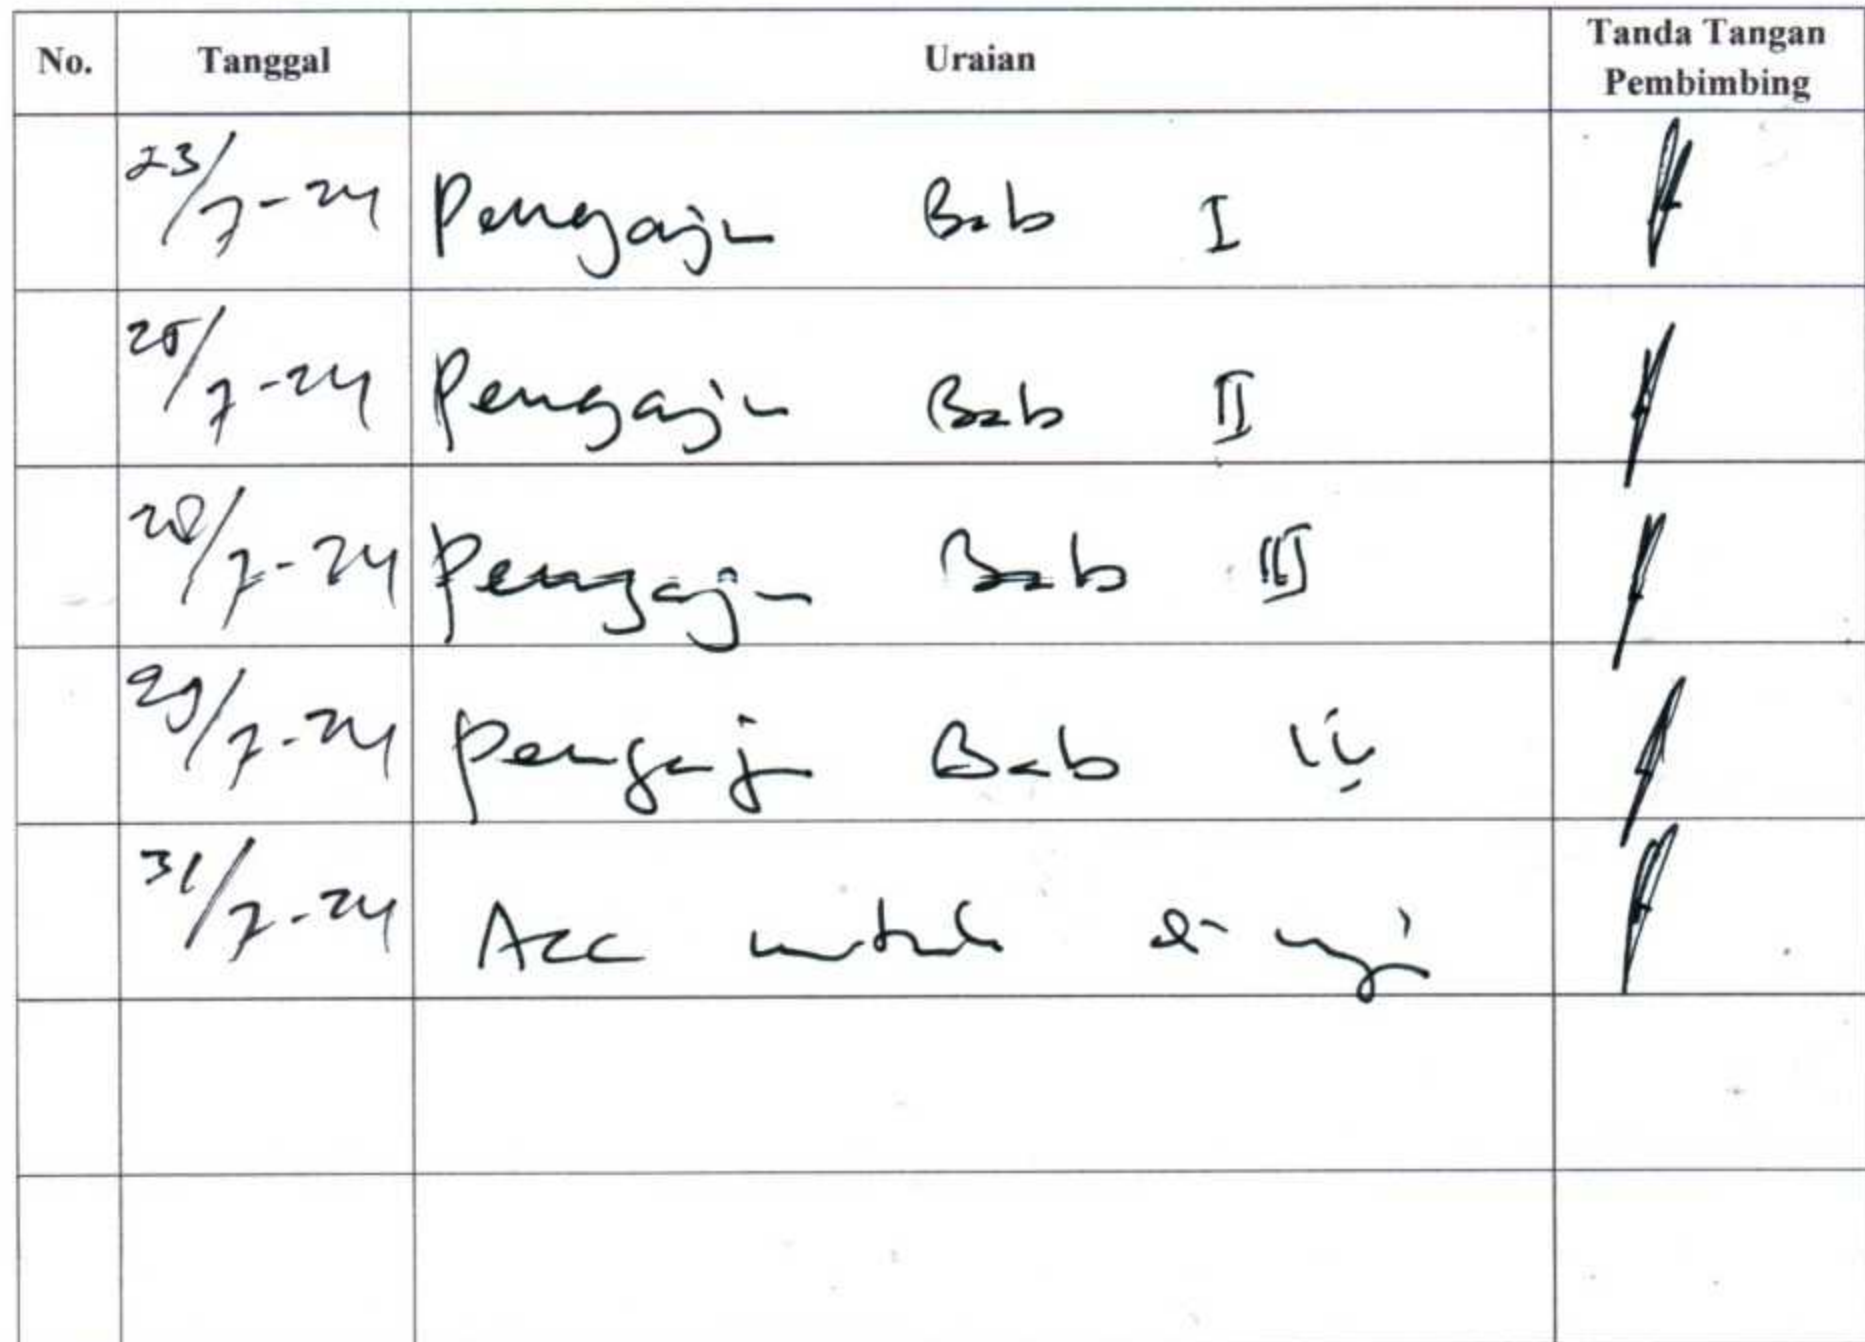 No. Tanggal Uraian Tanda Tangan Pembimbing
23/7-24 Pengajuan Bab I
25/7-24 Pengajuan Bab II
28/7-24 Pengajuan Bab III
29/7-24 Pengajuan Bab IV
31/7-24 Acc untuk di uji